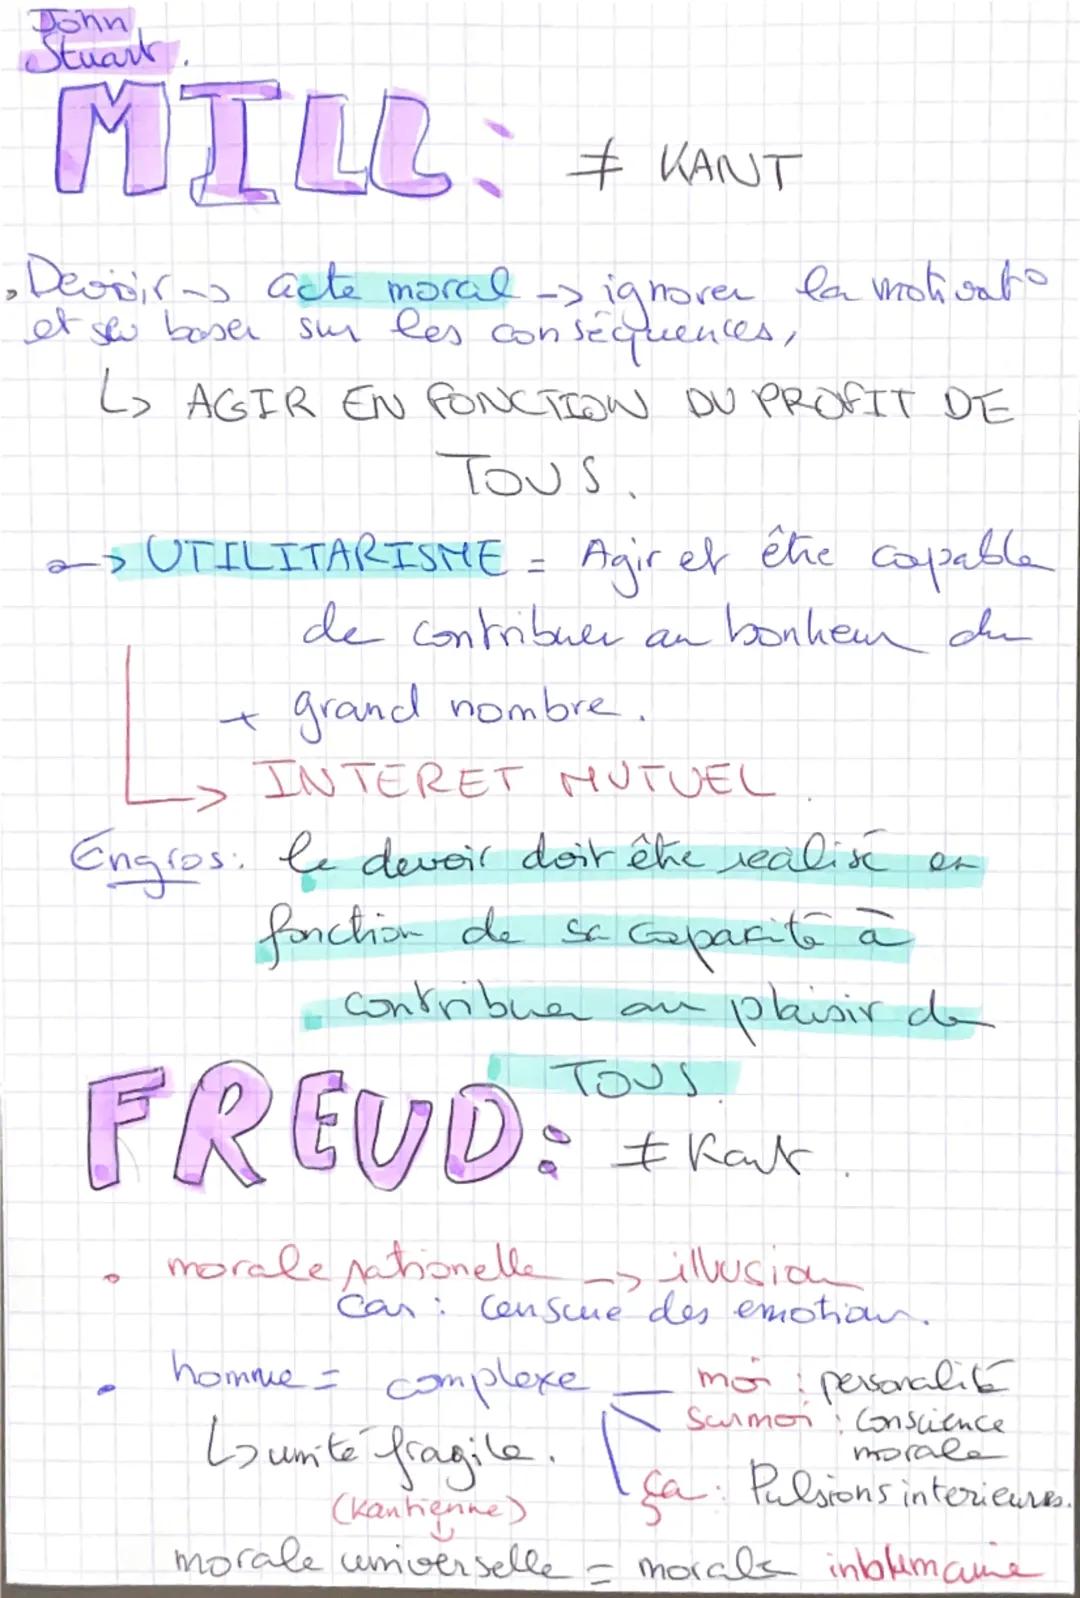 John
Stuart.
MILL: ≠ KANT
Devoir -> acte moral -> ignorer la motivat°
et se baser sur les conséquences,
↳ AGIR EN FONCTION DU PROFIT DE
TOUS.
-> UTILITARISME = Agir et être capable
de contribuer au bonheur du
+ grand nombre.
-> INTERET MUTUEL.
En gros: le devoir doit être réalisé en
fonction de sa capacité à
contribuer au plaisir de
TOUS.
FREUD: ≠ Kant.
• morale rationelle -> illusion
car : censure des emotions.
• homme = complexe — moi : personalité
surmoi : conscience
morale
↳ unité fragile.
ça : Pulsions interieures.
(kantienne)
morale universelle = morale inhumaine